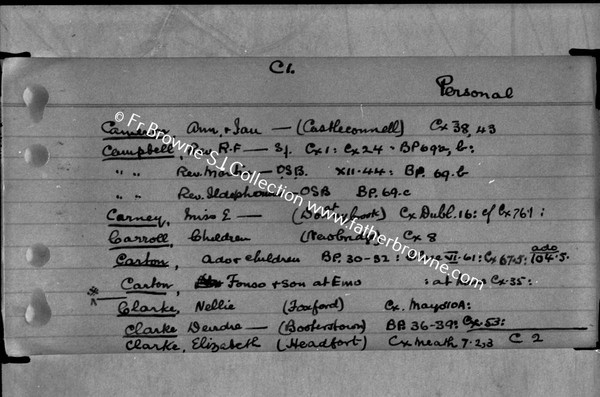 C1.
Personal
Cameron, Ann, + Ian — (Castleconnell) Cx 38, 43
Campbell, Rev. R.F — SJ. Cx 1: Cx 24 · BP 69a, b:
" " Rev. Martin — OSB. XII·44: BP. 69.b
" " Rev. Ildephonsus — OSB BP. 69.c
Carney, Miss E — (at Donnybrook) Cx Dubl. 16: cf Cx 769:
Carroll, Children (Newbridge) Cx 8
Carton, ado + children BP. 30-32: VI·61: Cx 67·5: ado 104·5.
Carton, Fonso + son at Emo : at Cx·35:
Clarke, Nellie (Foxford) Cx. Mayo 10A:
Clarke Deirdre — (Booterstown) BP. 36-39: Cx. 53:
Clarke, Elizabeth (Headfort) Cx Meath 7·2,3 C 2
© Fr. Browne S.J. Collection www.fatherbrowne.com